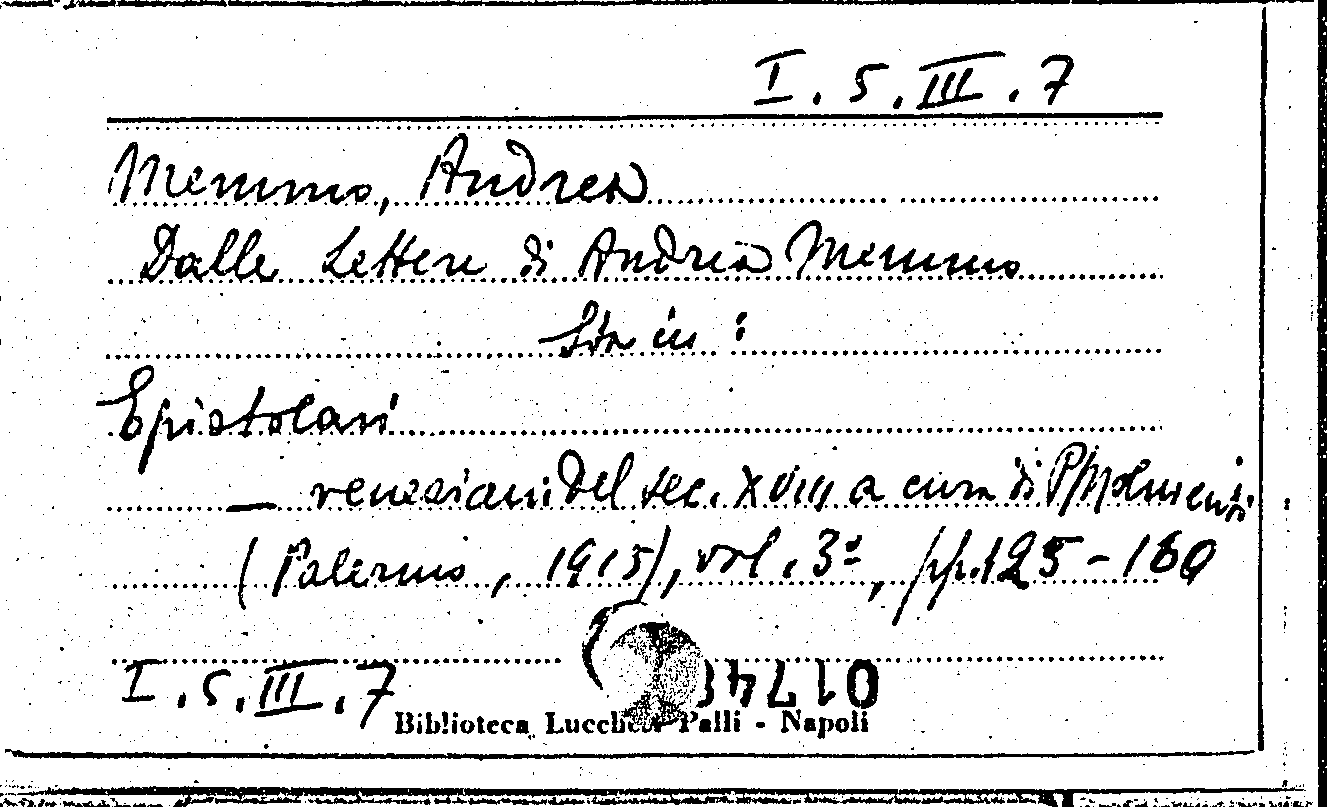 I. 5. III. 7
Memmo, Andrea
Dalle Lettere di Andrea Memmo
Sta in :
Epistolari
— veneziani del sec. XVIII a cura di P. Molmenti
(Palermo, 1915), vol. 3º, pp. 125 - 160
I. 5. III. 7
Biblioteca Lucchesi Palli - Napoli